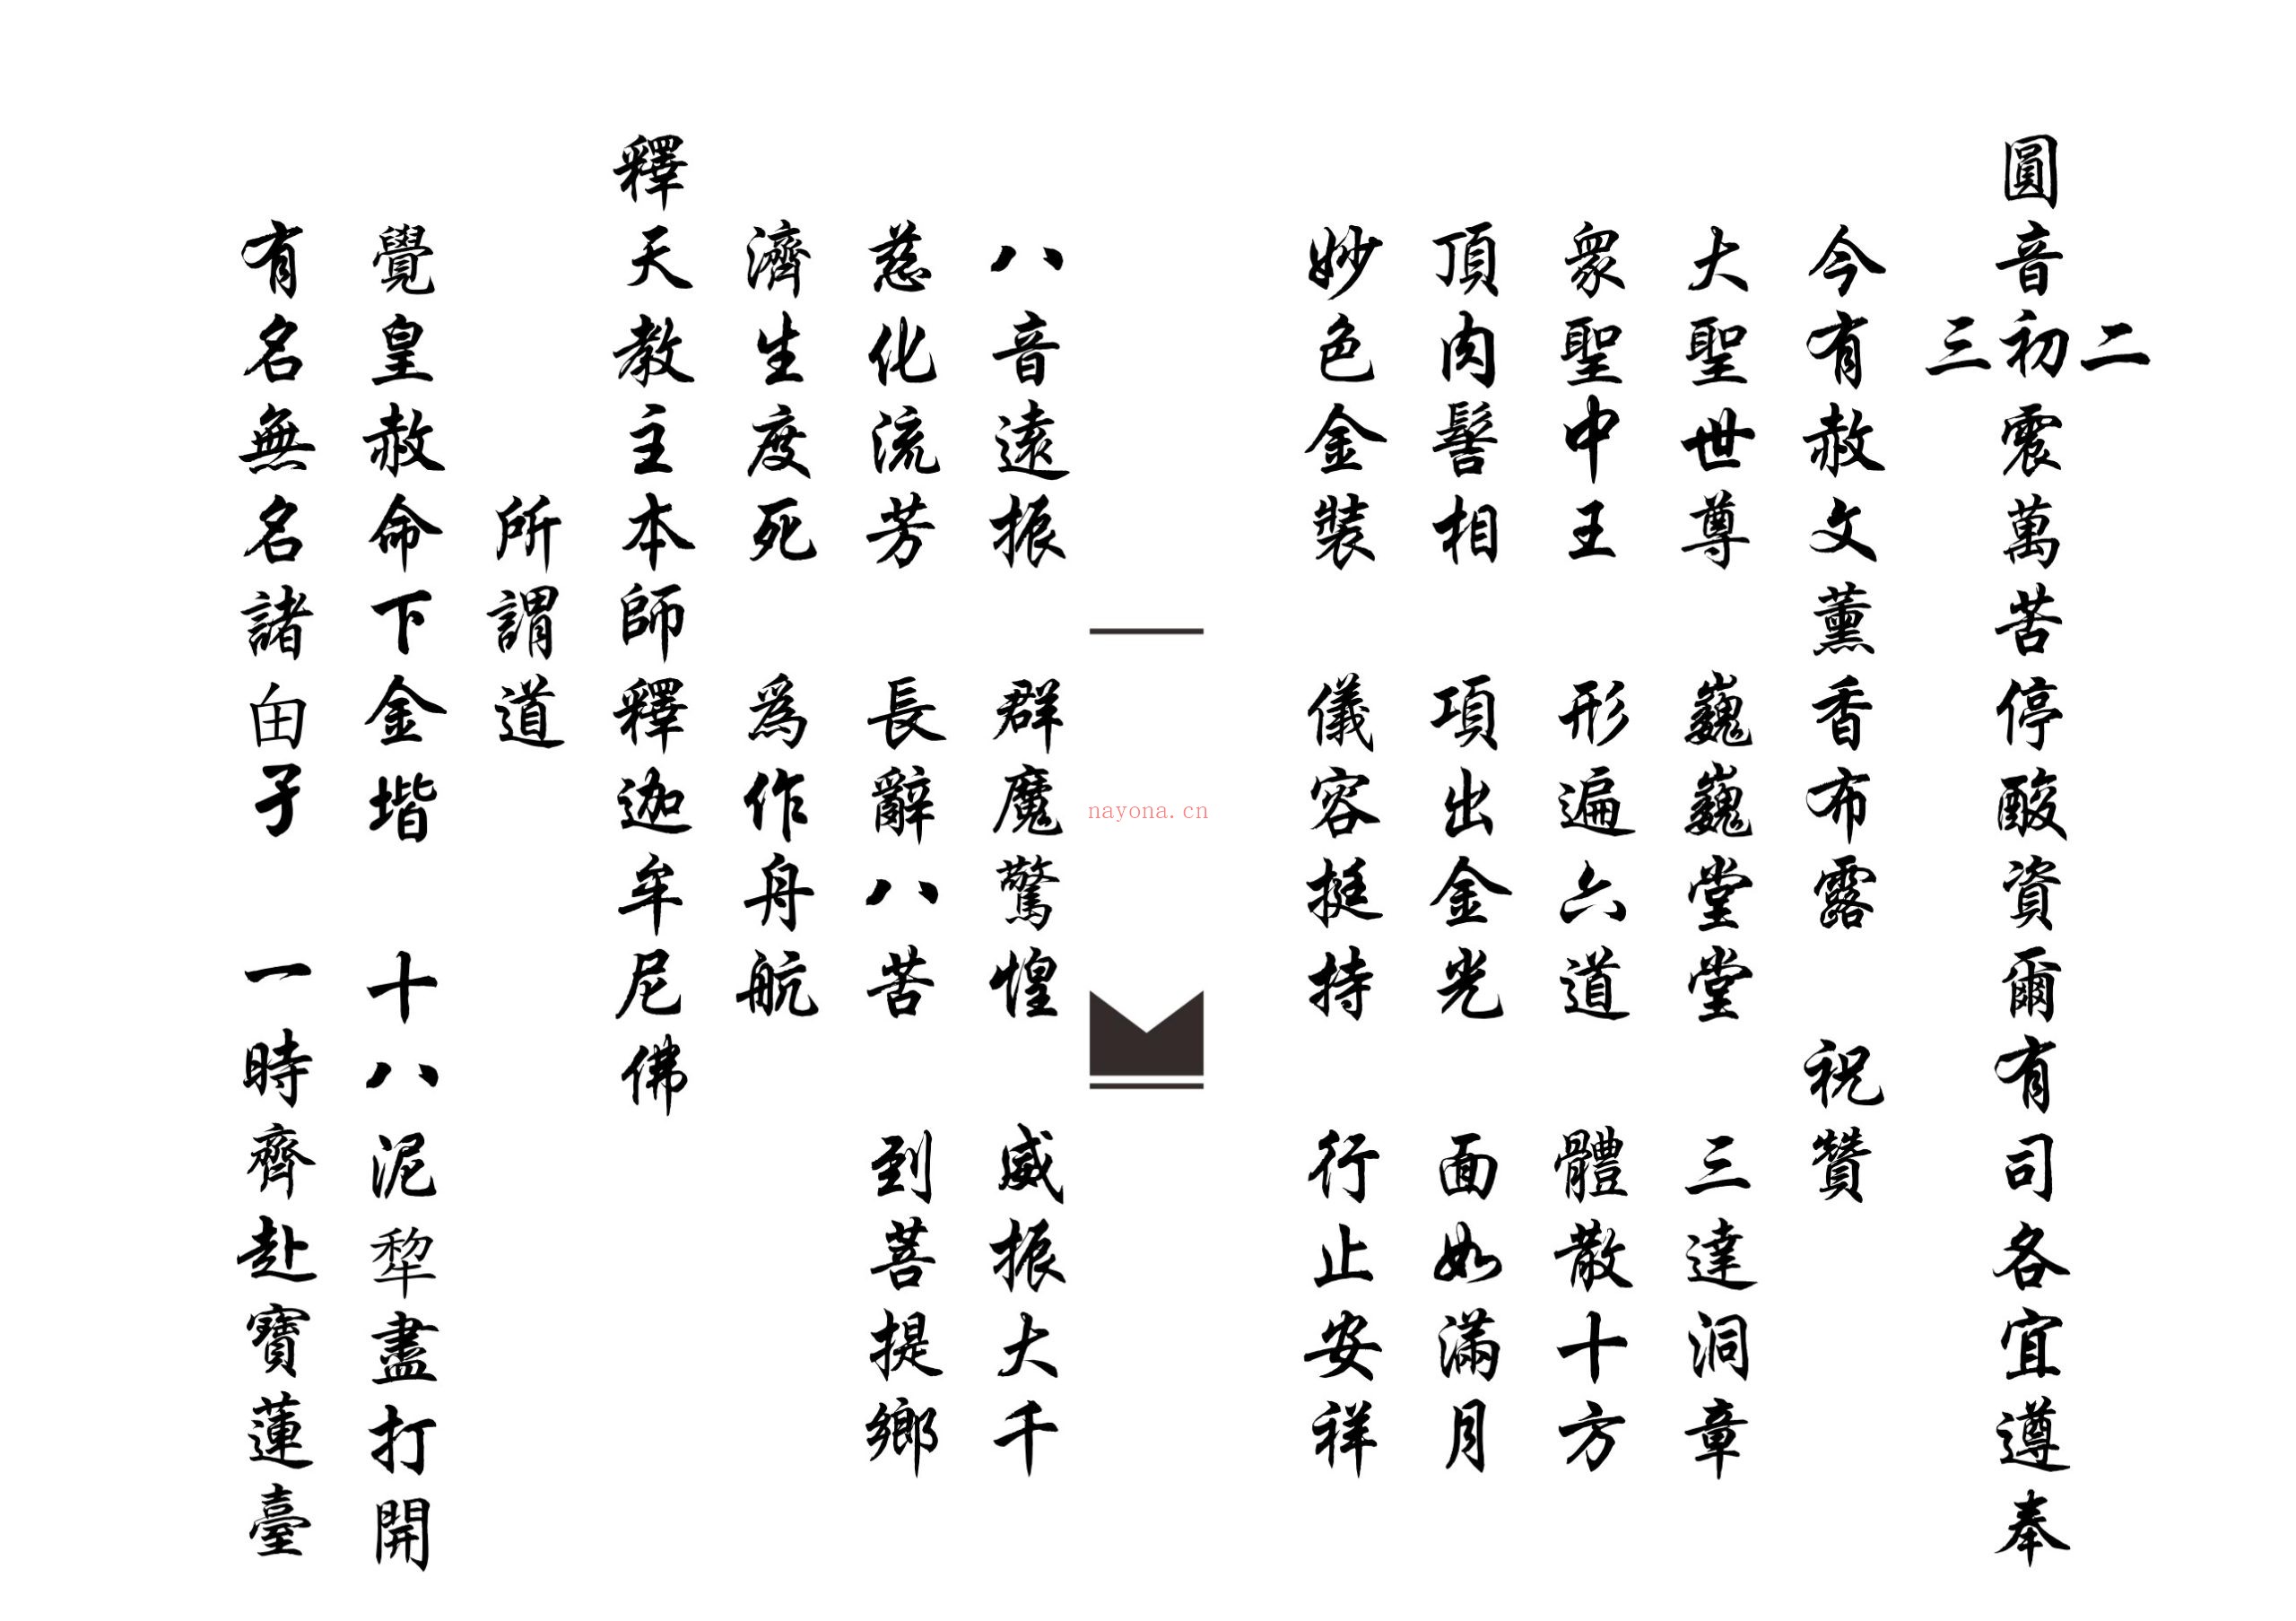 圓音二初三震萬苦停酸資爾有司各宜遵奉
今有赦文薰香布露 祝贊
大聖世尊 巍巍堂堂 三達洞章
眾聖中王 形遍六道 體散十方
頂肉髻相 項出金光 面如滿月
妙色金裝 儀容挺持 行止安祥
nayona.cn
八音遠振 群魔驚惶 威振大千
慈化流芳 長辭八苦 到菩提鄉
濟生度死 爲作舟航
釋天教主本師釋迦牟尼佛
所謂道
覺皇赦命下金堦 十八泥犂盡打開
有名無名諸甶孑 一時齊赴寶蓮臺